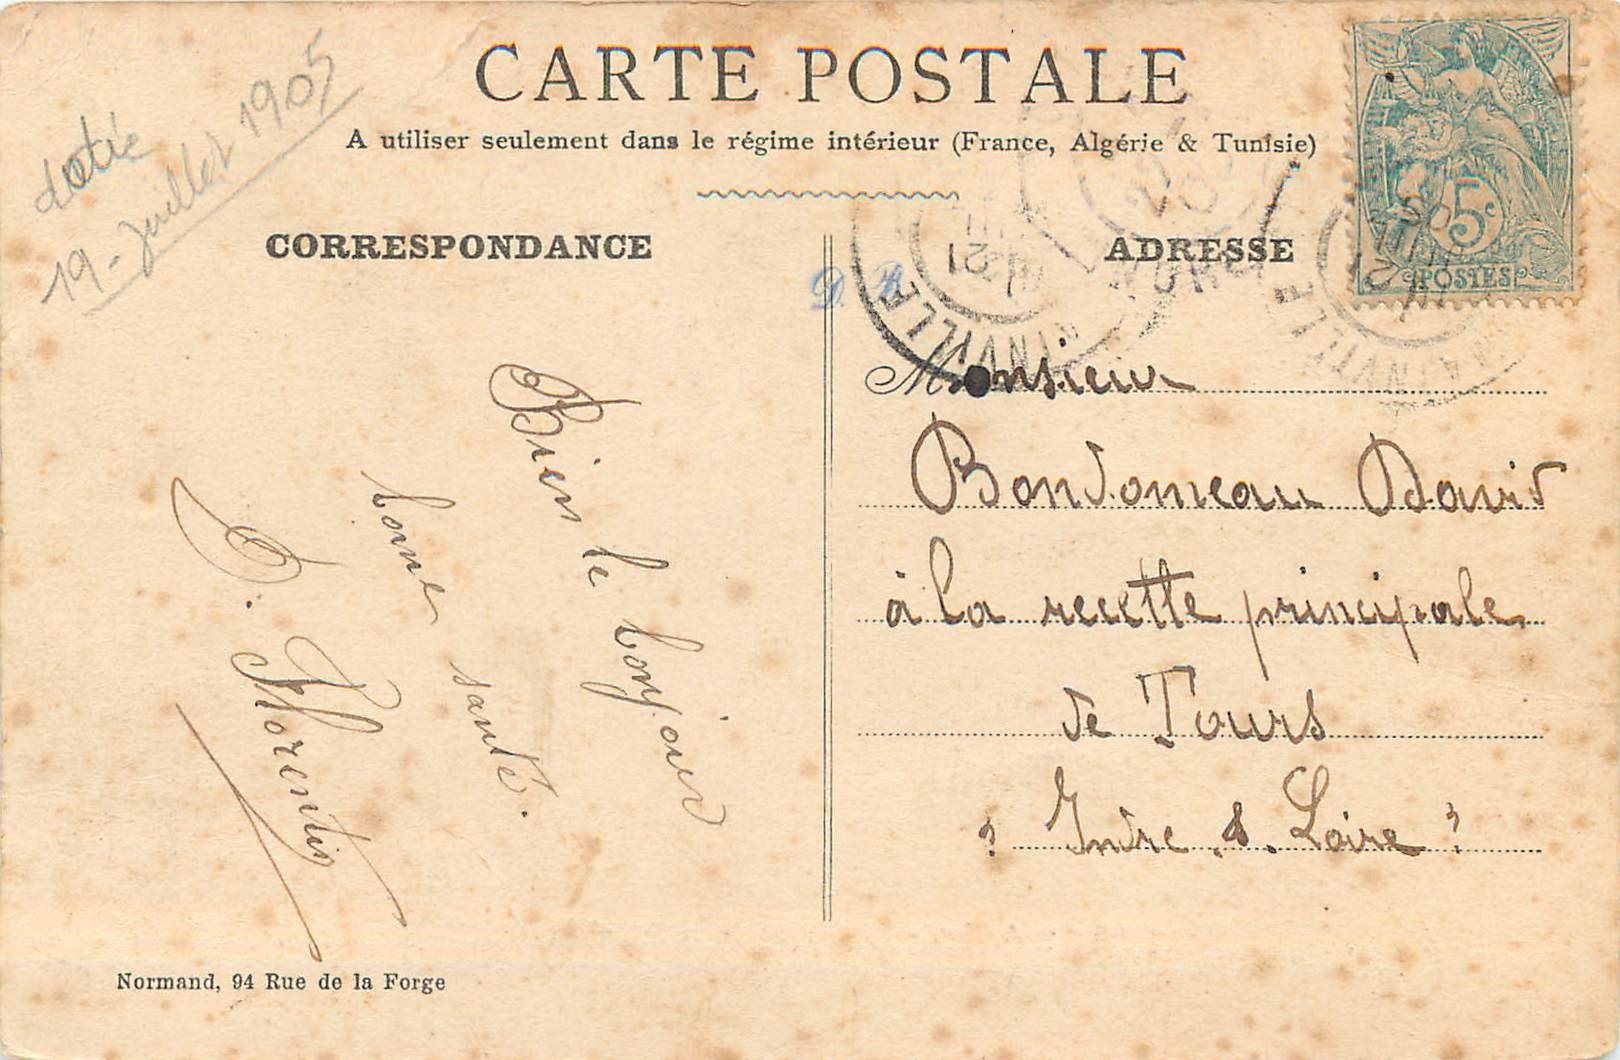 CARTE POSTALE
A utiliser seulement dans le régime intérieur (France, Algérie & Tunisie)
datée
19 - Juillet 1905
CORRESPONDANCE
Bien le bonjour
bonne santé.
D. Florentin
Normand, 94 Rue de la Forge
ADRESSE
D. B.
Monsieur
Bondonneau David
à la recette principale
de Tours
Indre & Loire
5c
POSTES
21